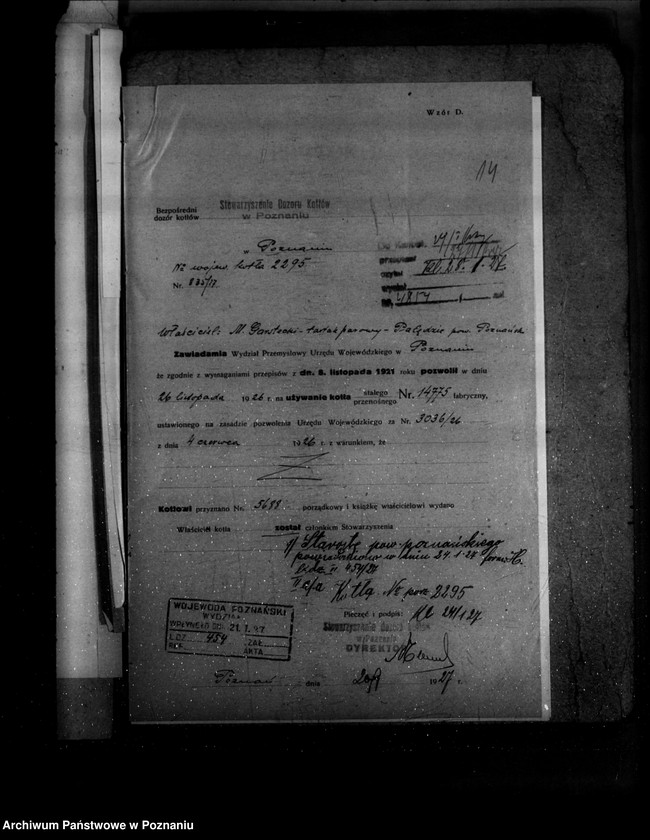 Wzór D.
14
Bezpośredni
dozór kotłów
Stowarzyszenie Dozoru Kotłów
w Poznaniu
w Poznaniu
Nr wojew. kotła 2295
Nr. 835/17.
Do Kancel.
przepisano
czytał
wysłał
4854
Właściciel: M. Garstecki - tartak parowy - Palędzie pow. Poznańsk
Zawiadamia Wydział Przemysłowy Urzędu Wojewódzkiego w Poznaniu
że zgodnie z wymaganiami przepisów z dn. 8. listopada 1921 roku pozwolił w dniu
26 listopada 1926 r. na używanie kotła stałego
przenośnego Nr. 14775 fabryczny,
ustawionego na zasadzie pozwolenia Urzędu Wojewódzkiego za Nr. 3036/26
z dnia 4 czerwca 1926 r. z warunkiem, że
Kotłowi przyznano Nr. 5688 porządkowy i książkę właścicielowi wydano
Właściciel kotła został członkiem Stowarzyszenia
I/ Starostę pow. poznańskiego
powiadomiono w dniu 24.1.27
II c/a Kotła Nr 2295
Pieczęć i podpis: 24/1 27.
Stowarzyszenie Dozoru Kotłów
w Poznaniu
DYREKTOR
WOJEWODA POZNAŃSKI
WYDZIAŁ
WPŁYNĘŁO DN. 21.1.27
L.DZ. 454 ZAŁ.
AKTA
Poznań dnia 20/I 1927 r.
Archiwum Państwowe w Poznaniu